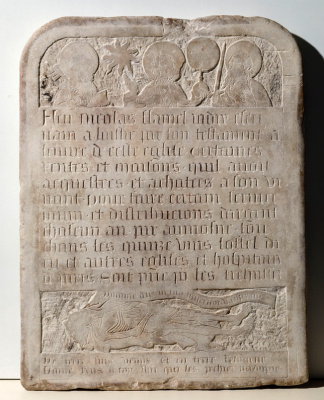 Feu nicolas flamel iadiz escri
uain a laissie par son testament a
leuure de ceste eglise certaines
rentes et maisons quil auoit
acquestees et achatees a son vi
uant pour faire certain seruice
diuin et distribucions dargent
chascun an par aumosne tou
chans les quinze vins lostel di
eu et autres eglises et hospitaux
a paris Soit prie por les
De terre suis venus et en terre retorne
Lame rens a toy ihu qui les pechiez pardonne